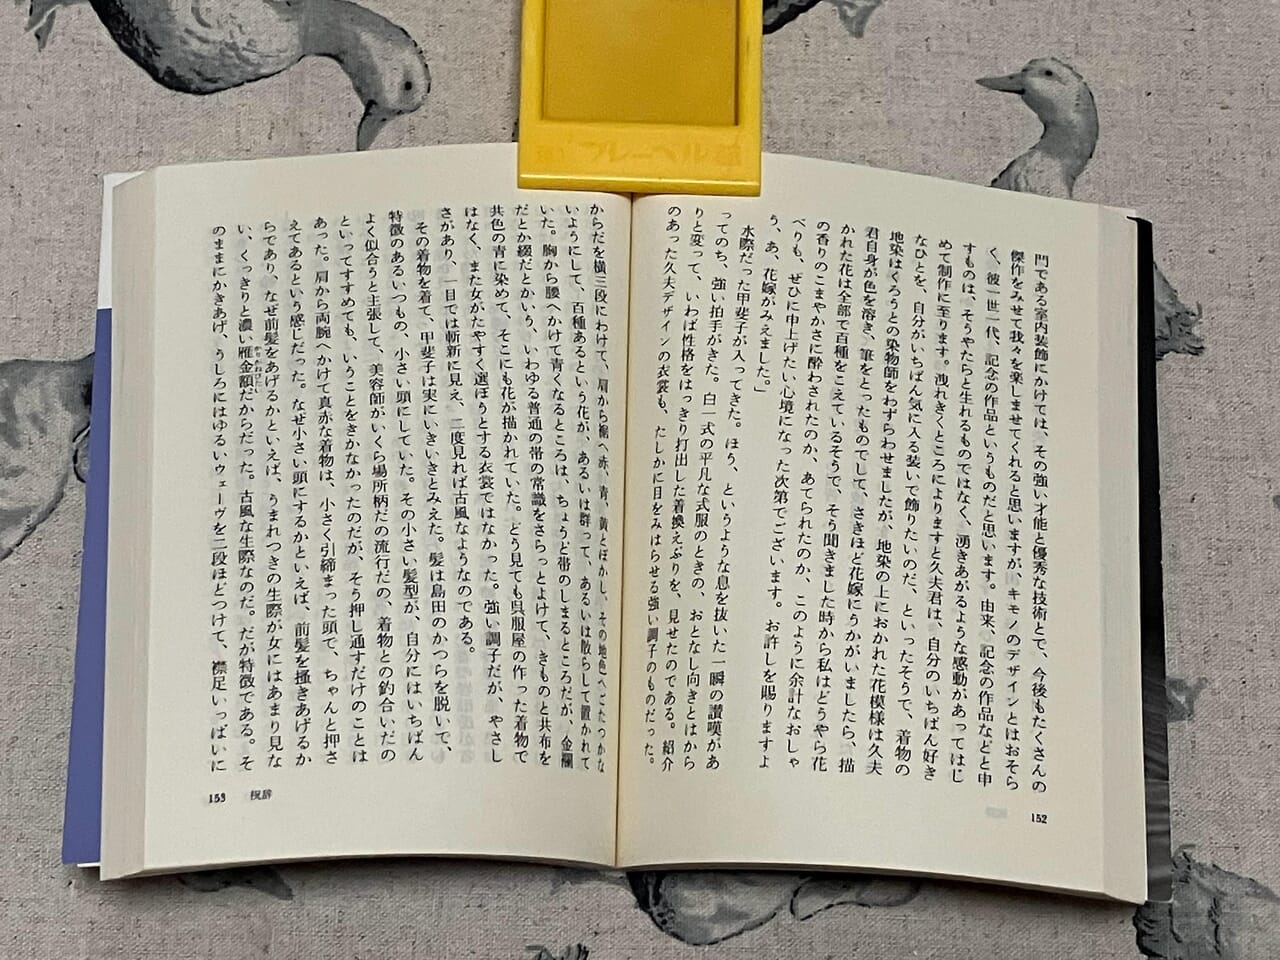 フレーベル館
門である室内装飾にかけては、その強い才能と優秀な技術とで、今後もたくさんの
傑作をみせて我々を楽しませてくれると思いますが、キモノのデザインとはおそら
く、彼一世一代、記念の作品というものだと思います。由来、記念の作品などと申
すものは、そうやたらと生れるものではなく、湧きあがるような感動があってはじ
めて制作に至ります。洩れきくところによりますと久夫君は、自分のいちばん好き
なひとを、自分がいちばん気に入る装いで飾りたいのだ、といったそうで、着物の
地染はくろうとの染物師をわずらわせましたが、地染の上におかれた花模様は久夫
君自身が色を溶き、筆をとったものでして、さきほど花嫁にうかがいましたら、描
かれた花は全部で百種をこえているそうで、そう聞きました時から私はどうやら花
の香りのこまやかさに酔わされたのか、あてられたのか、このように余計なおしゃ
べりも、ぜひに申上げたい心境になった次第でございます。お許しを賜りますよ
う、あ、花嫁がみえました。」
水際だった甲斐子が入ってきた。ほう、というような息を抜いた一瞬の讃嘆があ
ってのち、強い拍手がきた。白一式の平凡な式服のときの、おとなし向きとはから
りと変って、いわば性格をはっきり打出した着換えぶりを、見せたのである。紹介
のあった久夫デザインの衣裳も、たしかに目をみはらせる強い調子のものだった。
152
からだを横三段にわけて、肩から裾へ赤、青、黄とぼかし、その地色へごたつかな
いようにして、百種あるという花が、あるいは群って、あるいは散らして置かれて
いた。胸から腰へかけて青くなるところは、ちょうど帯のしまるところだが、金襴
だとか綴だとかいう、いわゆる普通の帯の常識をさらっとよけて、きものと共布を
共色の青に染めて、そこにも花が描かれていた。どう見ても呉服屋の作った着物で
はなく、また女がたやすく選ぼうとする衣裳ではなかった。強い調子だが、やさし
さがあり、一目では斬新に見え、二度見れば古風なようなのである。
その着物を着て、甲斐子は実にいきいきとみえた。髪は島田のかつらを脱いで、
特徴のあるいつもの、小さい頭にしていた。その小さい髪型が、自分にはいちばん
よく似合うと主張して、美容師がいくら場所柄だの流行だの、着物との釣合いだの
といってすすめても、いうことをきかなかったのだが、そう押し通すだけのことは
あった。肩から両腕へかけて真赤な着物は、小さく引締まった頭で、ちゃんと押さ
えてあるという感じだった。なぜ小さい頭にするかといえば、前髪を搔きあげるか
らであり、なぜ前髪をあげるかといえば、うまれつきの生際が女にはあまり見な
い、くっきりと濃い雁金額だからだった。古風な生際なのだ。だが特徴である。そ
かりがねびたい
のままにかきあげ、うしろにはゆるいウェーヴを二段ほどつけて、襟足いっぱいに
153 祝辞